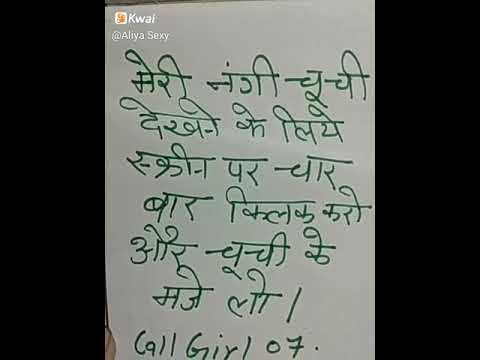 Kwai
@Aliya Sexy
मेरी नंगी चूची
देखने के लिये
स्क्रीन पर चार
बार क्लिक करो
और चूची के
मजे लो।
Call Girl 07.